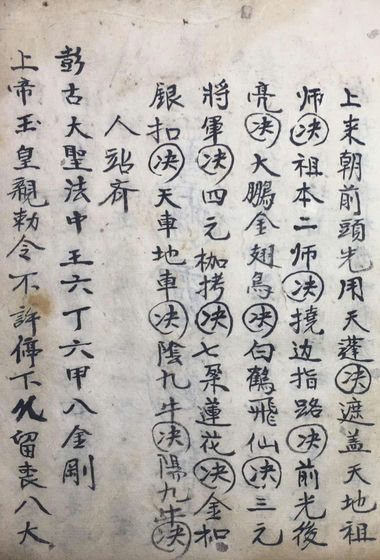 上來朝前頭先用天蓬决遮盖天地祖
师决祖本二师决撓边指路决前光後
亮决大鵬金翅鳥决白鶴飛仙决三元
將軍决四元枷拷决七朶蓮花决金扣
銀扣决天車地車决陰九牛决陽九牛决
人站斉
彭古大聖法中王六丁六甲八金剛
上帝玉皇親勅令不許停下留丧八大